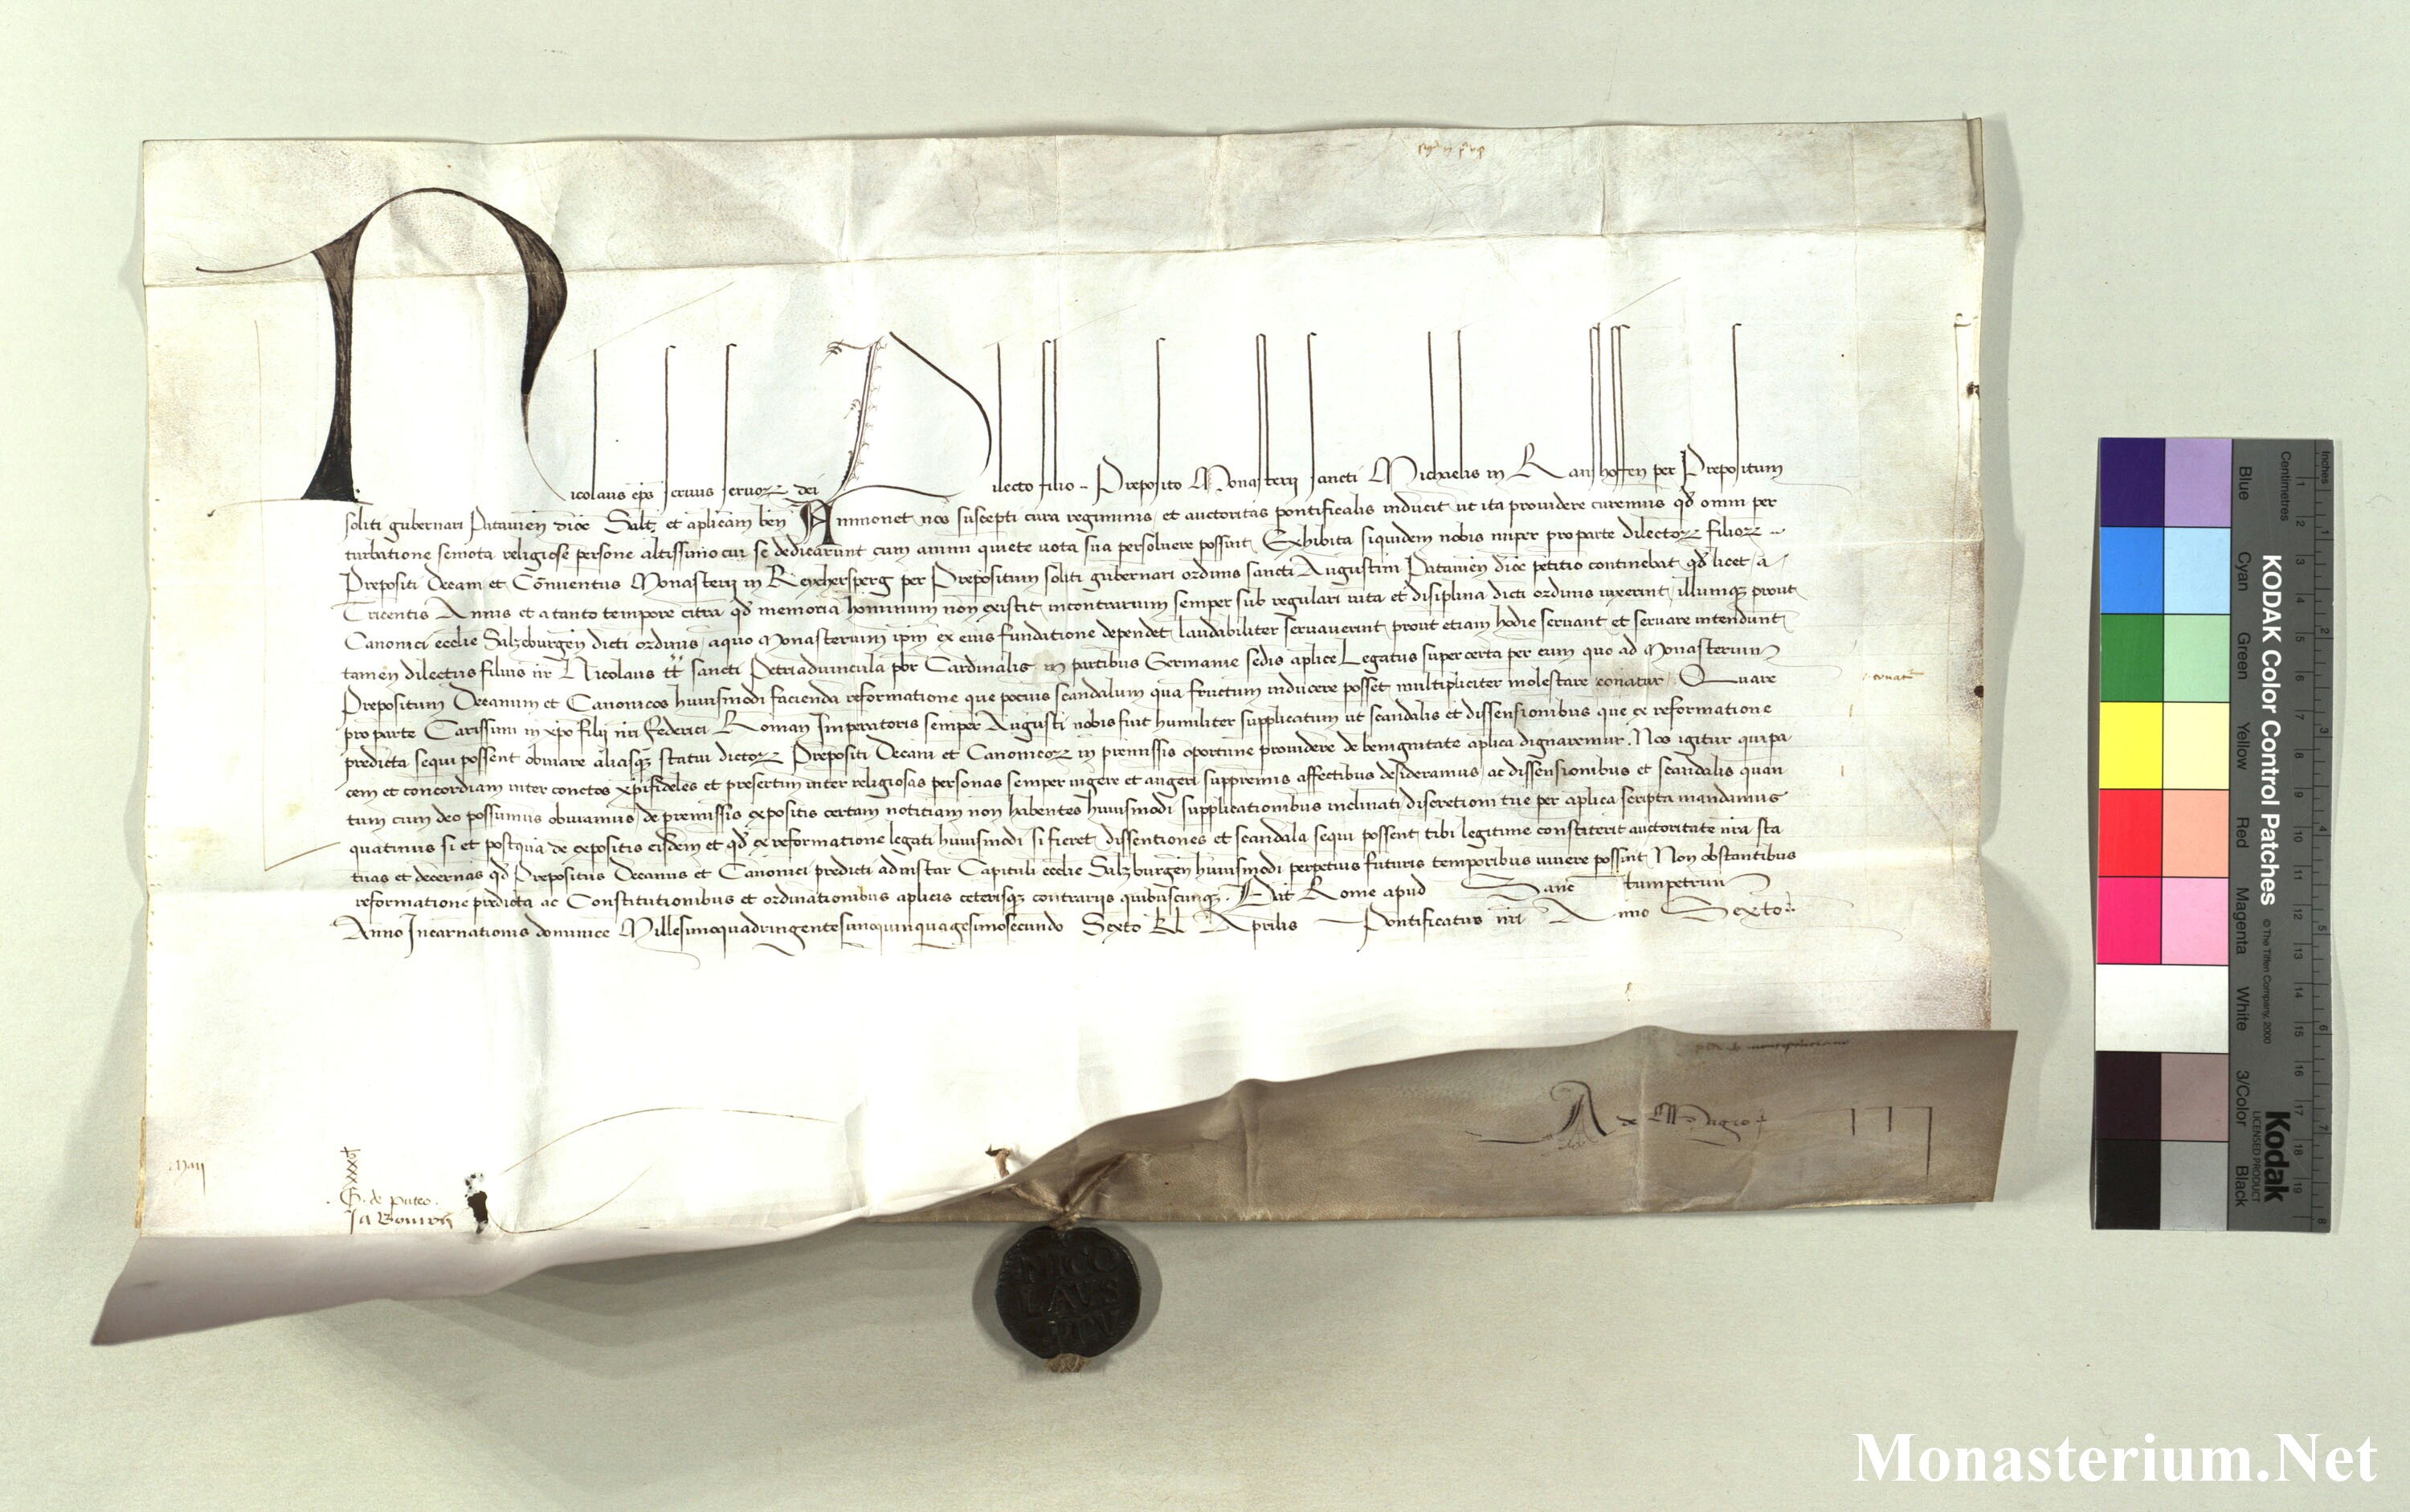 Nicolaus ep̄s seruus seruoꝝ dei Dilecto filio .. Preposito Monasterij sancti Michaelis in Ranshoffen per Prepositum
soliti gubernari Patauieñ dioč Salt̃ et aplicam beñ Ammonet nos suscepti cura regiminis et auctoritas pontificalis inducit ut ita prouidere curemus qd̃ omni per
turbatione semota religiose persone altissimo cui se dedicarunt cum animi quiete uota sua persoluere possint Exhibita siquidem nobis nuper pro parte dilectoꝝ filioꝝ ..
Prepositi Decani et Conuentus Monasterij in Reychersperg per Prepositum soliti gubernari ordinis sancti Augustini Patauieñ dioč petitio continebat qd̃ licet a
Tricentis Annis et a tanto tempore citra qd̃ memoria hominum non existit incontrarium semper sub regulari uita et disiplina dicti ordinis uixerint illumqꝫ prout
Canonici ecclie Salzeburgeñ dicti ordinis aquo Monasterium ip̃m ex eius fundatione dependet laudabiliter seruauerint prout etiam hodie seruant et seruare intendunt
tamen dilectus filius nr̃ Nicolaus tt̃ sancti Petri aduincula pb̃r Cardinalis in partibus Germanie sedis aplice Legatus super certa per eum quo ad Monasterium
Prepositum Decanum et Canonicos huiusmodi facienda reformatione que pocius scandalum quã fructum inducere posset multipliciter molestare conatur. Quare
pro parte Carissimi in xp̃o filij nr̃i Federici Romañ Imperatoris semper Augusti nobis fuit humiliter supplicatum ut scandalis et dissensionibus que ex reformatione
predicta sequi possent obuiare aliasqꝫ statui dictoꝝ Prepositi Decani et Canonicoꝝ in premissis oportune prouidere de benignitate aplica dignaremur. Nos igitur qui pa
cem et concordiam inter conctos xp̃ifideles et presertim inter religiosas personas semper uigere et augeri suppremis affectibus desideramus ac dissensionibus et scandalis quan
tum cum deo possumus obuiamus de premissis expositis certam notitiam non habentes huiusmodi supplicationibus inclinati discretioni tue per aplica scripta mandamus
quatinus si et postquã de expositis eisdem et qd̃ ex reformatione legati huiusmodi si fieret dissentiones et scandala sequi possent tibi legitime constiterit auctoritate nr̃a sta
tuas et decernas qd̃ Prepositus Decanus et Canonici predicti ad instar Capituli ecclie Salzburgeñ huiusmodi perpetuis futuris temporibus uiuere possint Non obstantibus
reformatione predicta ac Constitutionibus et ordinationibus aplicis ceterisqꝫ contrarijs quibuscunqꝫ. Dat̃ Rome apud Sanctumpetrum
Anno Incarnationis dominice Millesimoquadringentesimoquinquagesimosecundo Sexto kl̃ Aprilis Pontificatus nr̃i Anno Sexto..
.conat̃
Maij
G. de puteo.
A de Magio
NICO
LAUS
PP V
KODAK Color Control Patches
© The Tiffen Company, 2000
Kodak
LICENSED PRODUCT
Inches
Centimetres
Blue
Cyan
Green
Yellow
Red
Magenta
White
3/Color
Black
Monasterium.Net